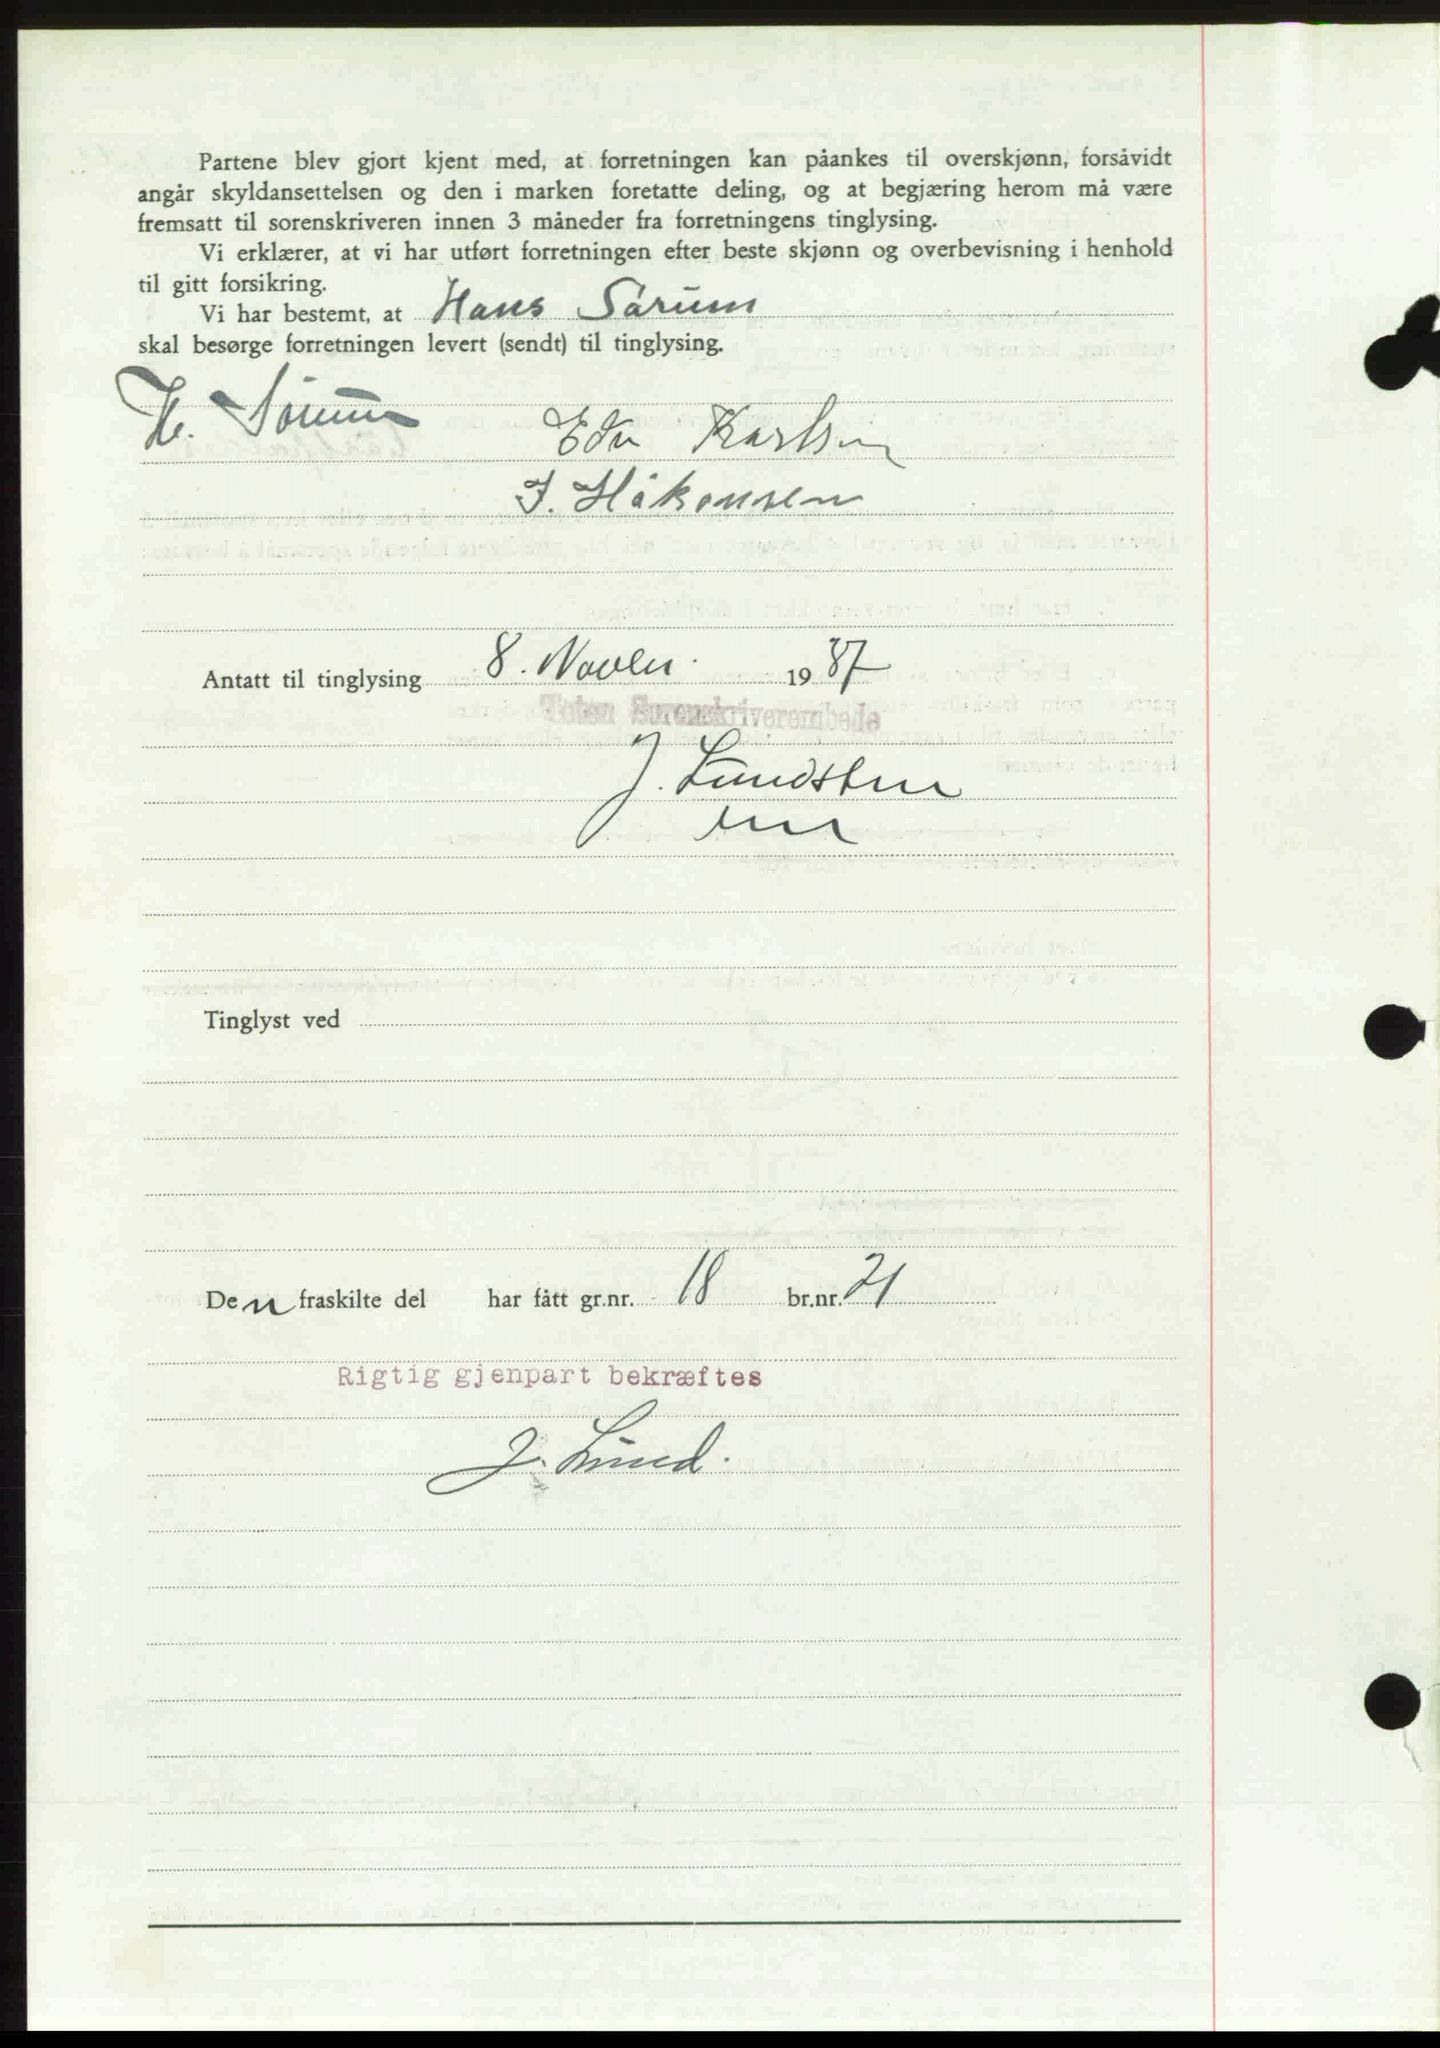 Partene blev gjort kjent med, at forretningen kan påankes til overskjønn, forsåvidt
angår skyldansettelsen og den i marken foretatte deling, og at begjæring herom må være
fremsatt til sorenskriveren innen 3 måneder fra forretningens tinglysing.
Vi erklærer, at vi har utført forretningen efter beste skjønn og overbevisning i henhold
til gitt forsikring.
Vi har bestemt, at Hans Sørum
skal besørge forretningen levert (sendt) til tinglysing.
H. Sørum Edv Karlsen
J. Håkonsen
Antatt til tinglysing 8. Novbr. 1937
Toten Sorenskriverembede
J. Lundsten
Tinglyst ved
Den fraskilte del har fått gr.nr. 18 br.nr. 21
Rigtig gjenpart bekræftes
J. Lund.